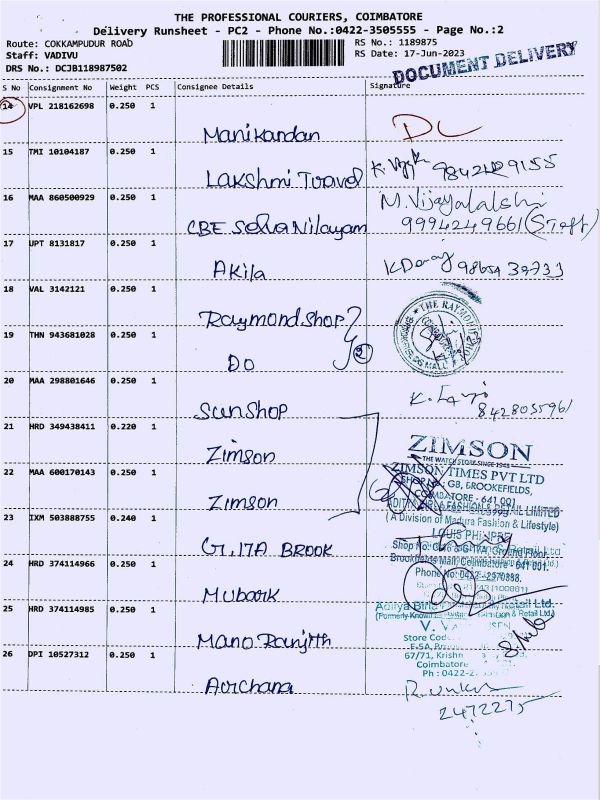 THE PROFESSIONAL COURIERS, COIMBATORE
Delivery Runsheet - PC2 - Phone No.:0422-3505555 - Page No.:2
Route: COKKAMPUDUR ROAD RS No.: 1189875
Staff: VADIVU RS Date: 17-Jun-2023
DRS No.: DCJB118987502 DOCUMENT DELIVERY
S No Consignment No Weight PCS Consignee Details Signature
14 VPL 218162698 0.250 1
Manikandan DL
15 TMI 10104187 0.250 1
Lakshmi Travel
16 MAA 860500929 0.250 1 M. Vijayalakshi
CBE Selva Nilayam 9994249661 (Staff)
17 UPT 8131817 0.250 1
Akila
18 VAL 3142121 0.250 1
Raymond shop THE RAYMOND SHOP
19 THN 943681028 0.250 1
DO 2
20 MAA 298801646 0.250 1
Sun Shop
21 HRD 349438411 0.220 1
Zimson ZIMSON
THE WATCH STORE SINCE 1948
22 MAA 600170143 0.250 1 ZIMSON TIMES PVT LTD
GB, BROOKEFIELDS,
Zimson COIMBATORE - 641 001
23 IXM 503888755 0.240 1 (A Division of Madura Fashion & Lifestyle)
G1, 17A BROOK
Brookefields Mall, Coimbatore - 641 001.
24 HRD 374114966 0.250 1
Mubark
25 HRD 374114985 0.250 1
Mano Ranjith
67/71, Krishn
26 DPI 10527312 0.250 1 Coimbatore
Archana
2472275